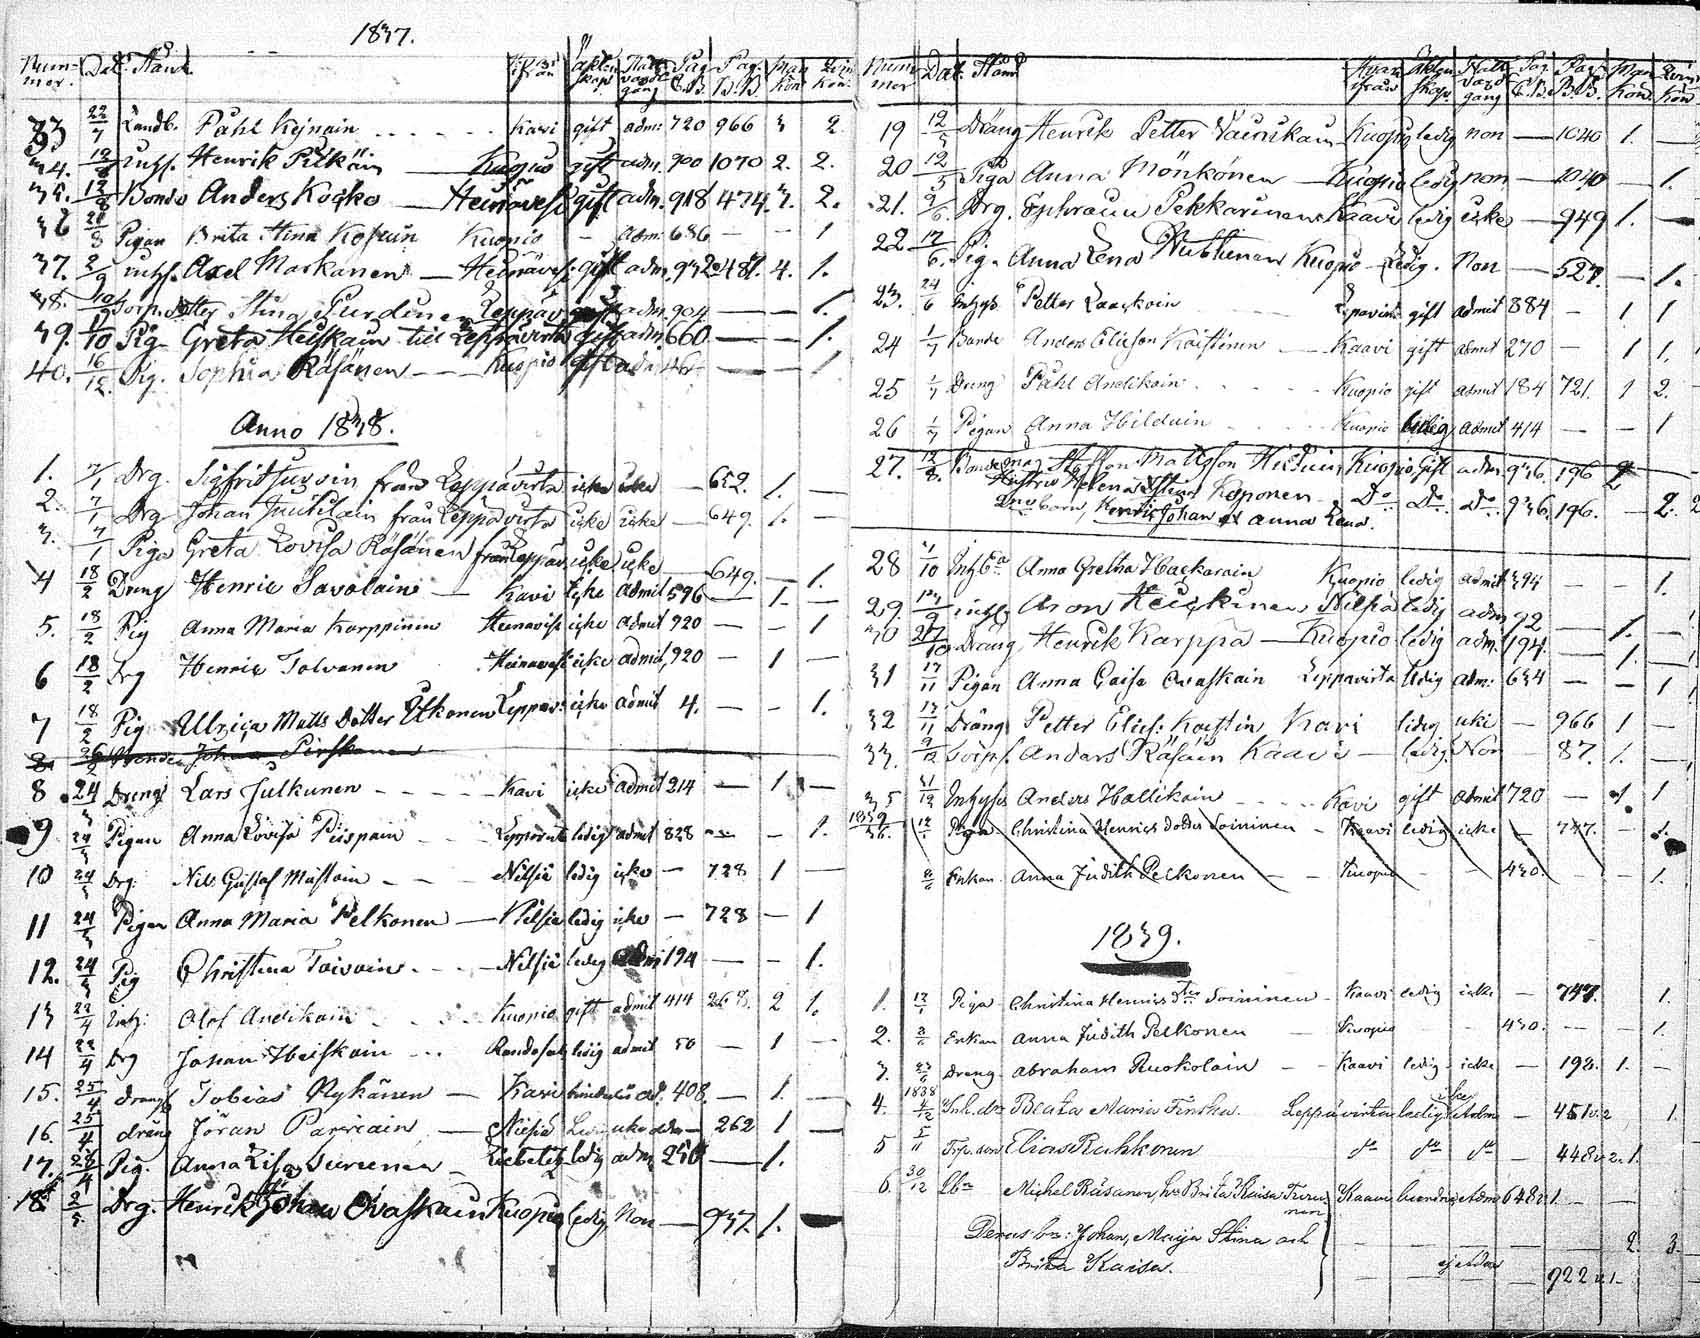 1837.
Num-mer. Dat. Stånd. Hvarifrån Äktenskap Nattvardsgång Pag. C.B. Pag. B.B. Mankön Qvinkön.
33 22/7 Landb. Påhl Kejnäin Kavi gift adm: 720 966 3 2
34. 12/8 inhs. Henrik Pitkäin Kuopio gift adm. 900 1070 2. 2.
35. 12/8 Bonde Anders Kosko Heinävesi gift adm. 918 474. 3. 2.
36 28/8 Pigan Brita Stina Kosuin Kuopio - adm: 686 - - 1
37. 2/9 inhs. Axel Markanen Heinäves. gift adm. 932 481. 4. 1.
38. 10/9 Torp. dotter Stina Purdinen Leppäv. gift adm. 904 - - 1.
39. 11/10 Pig. Greta Heiskain till Leppävirta gift adm. 660 - - 1.
40. 16/12 Pig. Sophia Räsänen Kuopio gift adm. 46 - - 1
Anno 1838.
1. 7/1 Drg. Sigfrid Jussin från Leppävirta icke icke - 652. 1. -
2. 7/1 Drg Johan Juutilain från Leppävirta icke icke - 649. 1. -
3. 7/1 Piga Greta Lovisa Räsänen från Leppäv. icke icke - 649. - 1.
4 18/2 Dreng Henric Savolain Kavi icke admit 596 - 1. -
5. 18/2 Pig Anna Maria Karppinen Heinavesi icke admit 920 - - 1
6 18/2 Drg Henric Tolvanen Heinavesi icke admit, 920 - 1 -
7 18/2 Pig Ulrica Matts Dotter Utkonen Leppäv: icke admit 4. - - 1.
8 26/2 Bonde Johan Pirskanen
8 24/3 Dreng Lars Julkunen Kavi icke admit 214 - 1 -
9 24/3 Pigan Anna Lovisa Piispain Leppävirta ledig admit 828 - - 1.
10 24/3 Drg. Nils Gustaf Mustoin Nilsiä ledig icke - 728 1 -
11 24/3 Pigan Anna Maria Pelkonen Nilsiä ledig icke - 728 - 1
12. 24/3 Pig Christina Toivain Nilsiä ledig adm 194 - - 1.
13 22/4 Inhs: Olof Andikain Kuopio gift admit 414 268. 2 1.
14 22/4 Drg Johan Heiskain Randasalm ledig admit 50 - 1 -
15. 25/4 dräng Tobias Nykänen Kavi ad. 408. - 1. -
16. 25/4 dräng Jöran Parviain Nilsiä icke - 262 1 -
17. 28/4 Pig. Anna Lisa Surunen Libelitz ledig adm 250 - - 1.
18. 2/5 Drg. Henrik Johan Ovaskain Kuopio ledig Non - 937. 1. -
Nummer Dat. Stånd Hvarifrån Äktenskap Nattvardgång Pag. C.B. Pag. B.B. Mankön. Qvinkön
19 12/5 Dräng Henrik Petter Vainikain Kuopio ledig non - 1040 1. -
20 12/5 Piga Anna Mönkönen Kuopio ledig non - 1040 - 1.
21. 9/6. Drg. Ephraim Pekkarinen Kaavi ledig icke - 949 1. -
22. 17/6. Pig. Anna Lena Kuopio Ledig. Non - 527. - 1.
23. 24/6 Inhys Petter Laackoin Lepävirt gift admit 884 - 1 1
24 1/7 Bonde Anders Elieson Kaistinen Kaavi gift admit 270 - 1 1.
25 1/7 Dreng Påhl Andikain Kuopio gift admit 184 721. 1 2.
26 1/7 Pigan Anna Hilduin Kuopio ledig admit 414 - - 1
27. 12/8. Bondemåg Staffan Mattsson Hilduin Kuopio Gift adm 936. 196
Hustru Helena Stina Kosponen Do Do Do 936. 196. - 2. 2
Des barn, Henric Johan o Anna Lena.
28 1/10 Inhs.a Anna Gretha Hackarain Kuopio ledig admit 394 - - 1.
29. inhs. Aron Heickinen Nilsiä ledig adm 92 - 1. -
30 27/10 Dräng Henrik Karppa Kuopio ledig adm. 194. - 1. -
31 17/11 Pigan Anna Caisa Ovaskain Leppävirta ledig adm: 634 - - 1
32 17/11 Dräng Petter Elies: Kaistin Kavi ledig icke - 966 1 -
33. 9/12 Torps. Anders Räsäin Kaavi ledig. Non - 87. 1. -
35 31/12 Inhyses Anders Hallikain Kavi gift admit 720 - 1. 1
1839 36. 12/1 Piga Christina Henrics dotter Soininen Kaavi ledig icke - 747. - 1.
2/6 Enkan Anna Judith Pelkonen Kuopio - - 430. - 1.
1839.
1. 12/1 Piga Christina Henrics dter Soininen Kaavi ledig icke - 747. 1.
2. 2/6 Enkan Anna Judith Pelkonen Kuopio 430. - - 1.
3. 23/6 Dreng Abraham Ruokolain Kaavi ledig icke - 198. 1. -
1838
4. 4/2 Inh. dr Beata Maria Finska. Leppävirta ledig icke Adm - 451 v. 2 1.
5 5/11 Torp. son Elias Ruhkonen do do do - 448 v. 2. 1.
6. 30/12 Lbr Michel Räsanen, h. Brita Kaisa Turunen Kaavi Adm 648 v. 1. - -
Deras br: Johan, Maija Stina och
Brita Kaisa. ej adm - 922 v. 1. 2. 3.